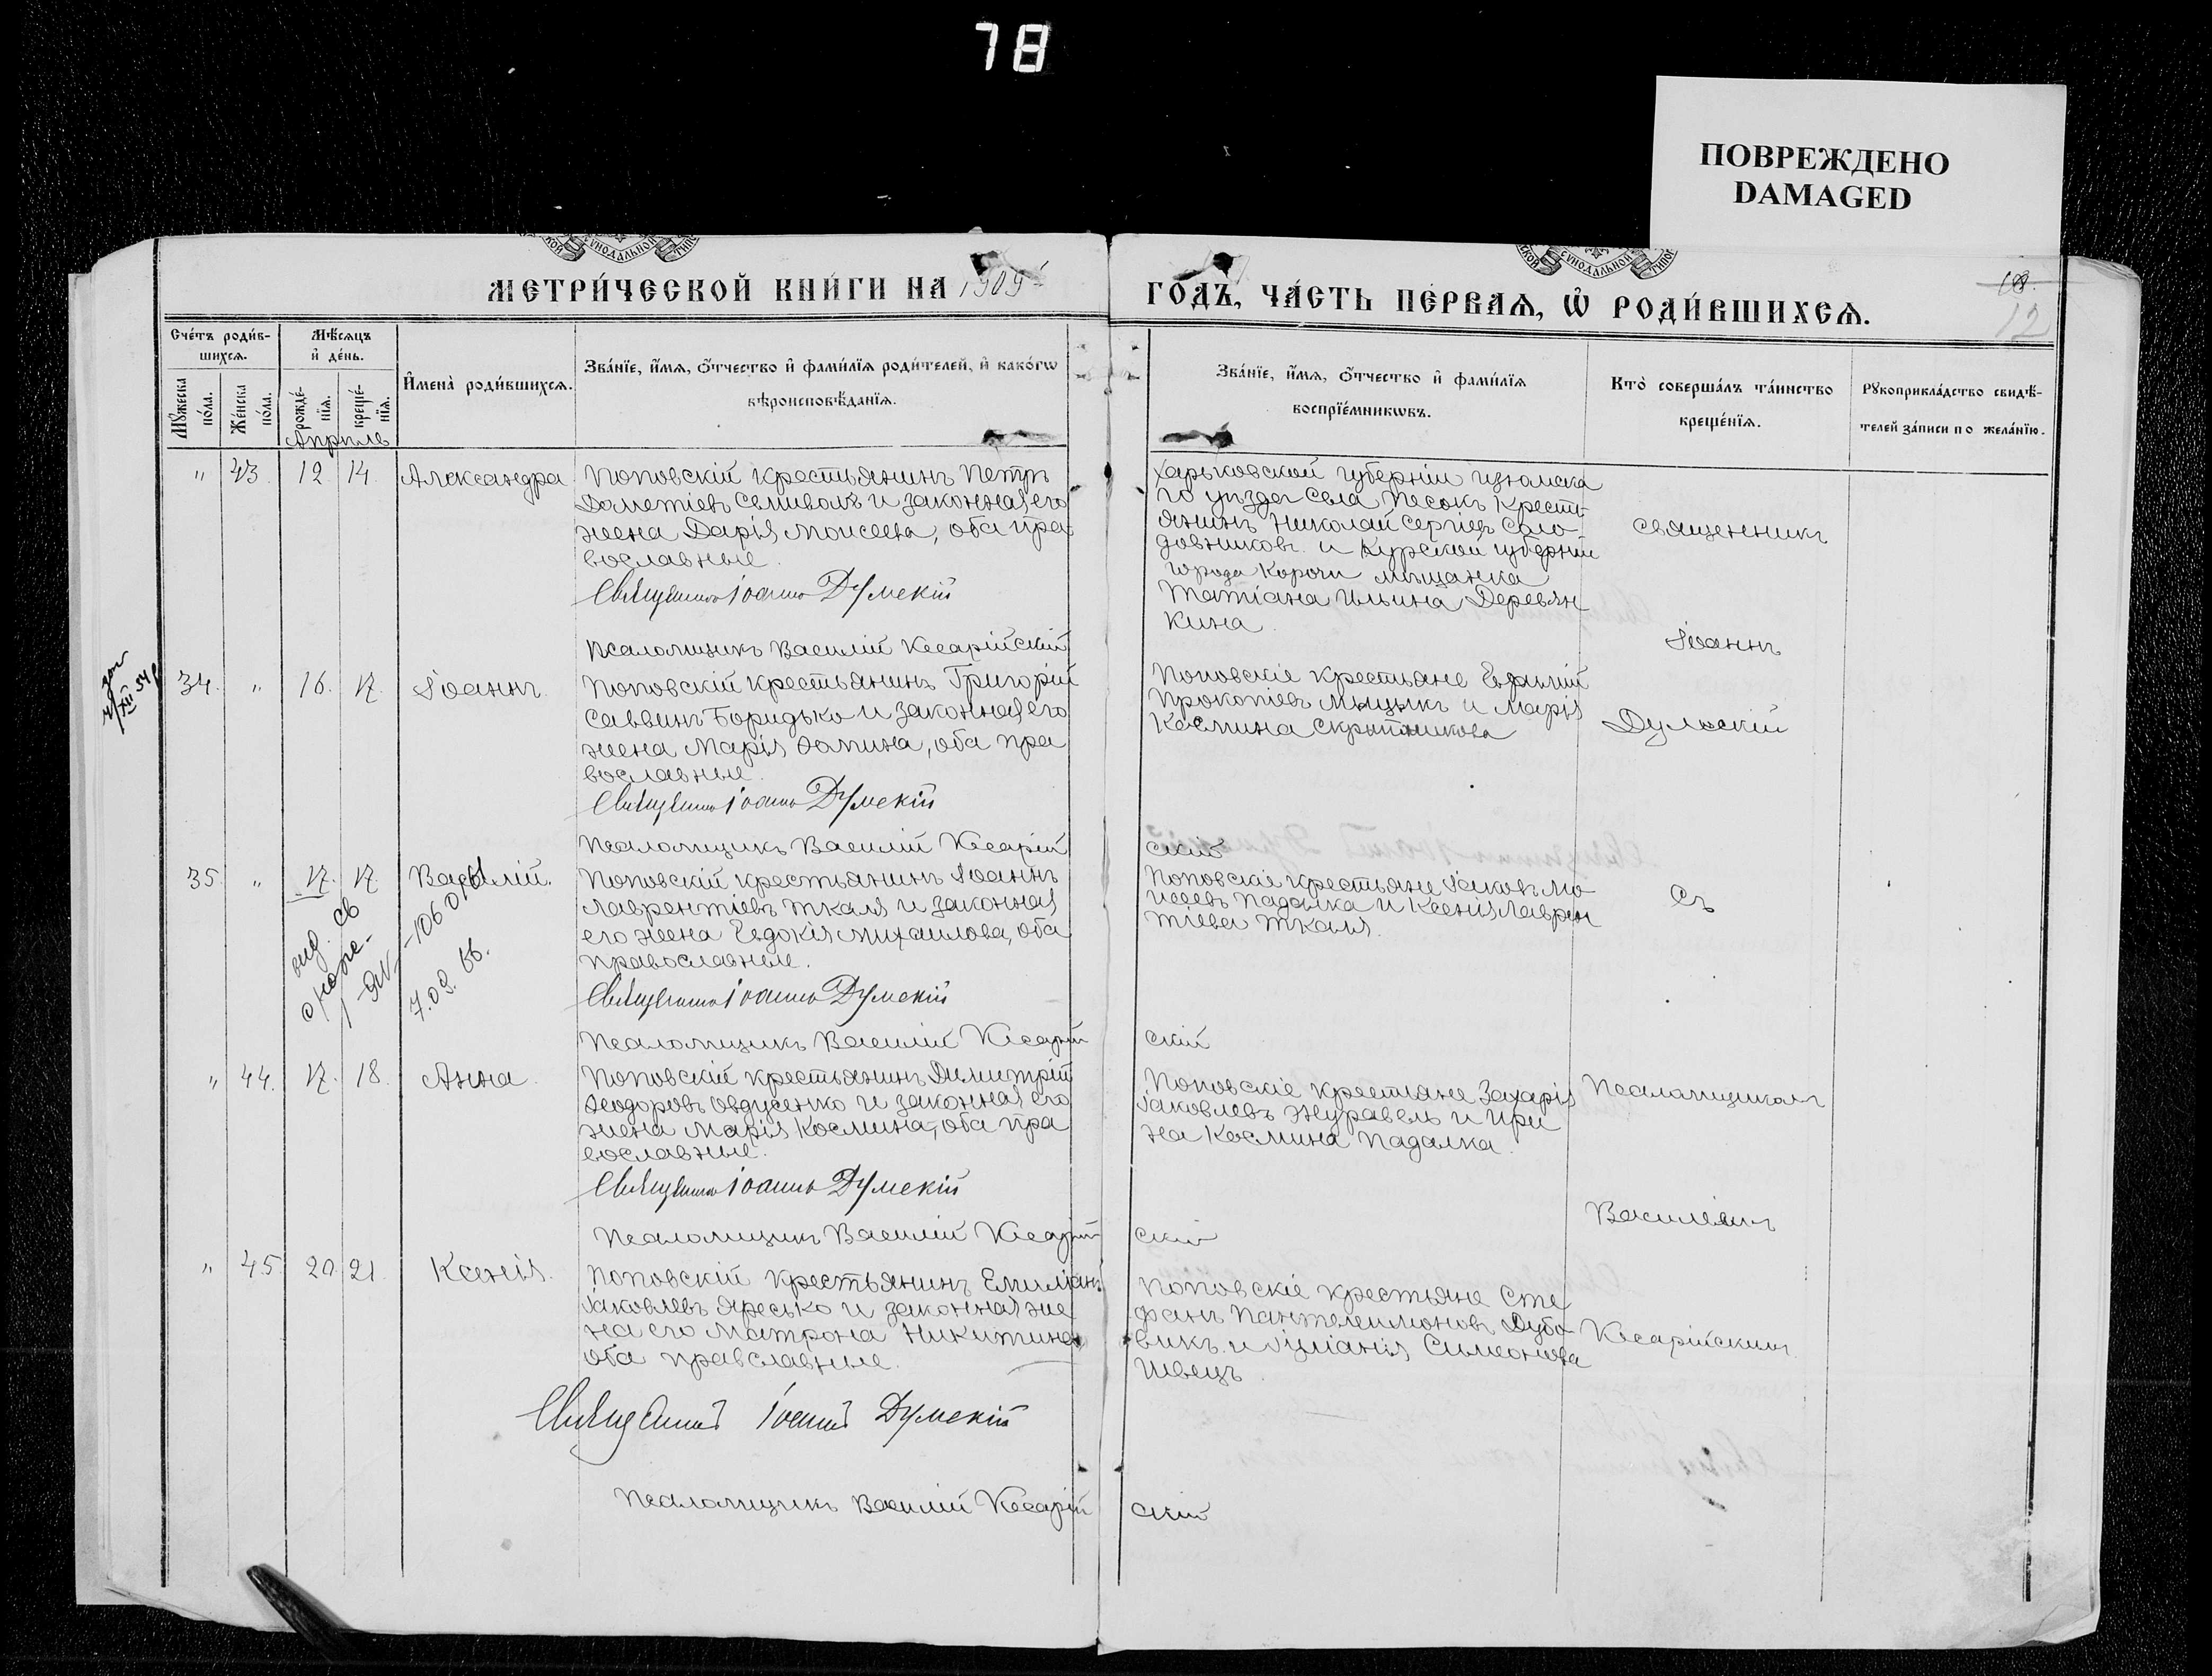 78
ПОВРЕЖДЕНО
DAMAGED
МЕТРИ́ЧЕСКОЙ КНИ́ГИ НА 1909
ГО́ДЪ, ЧА́СТЬ ПЕ́РВАЯ, Ѡ҆ РОДИ́ВШИХСЯ.
18.
12
Сче́тъ роди́в-
шихся.
Мѣ́сяцъ
и҆ де́нь.
И҆мена̀ роди́вшихся.
Зва́нїе, и҆́мя, ѻ҆́тчество и҆ фами́лїя роди́телей, и҆ како́гѡ
вѣроисповѣ́данїя.
Зва́нїе, и҆́мя, ѻ҆́тчество и҆ фами́лїя
воспрїе́мникѡвъ.
Кто̀ соверша́лъ та́инство
креще́нїя.
Рꙋкоприкла́дство свидѣ́-
телей за́писи по жела́нїю.
Мꙋ́жеска
по́ла.
Же́нска
по́ла.
рожде́-
нїя.
креще́-
нїя.
Апрѣль
" 43 12 14 Александра
Поповскій крестьянинъ Петръ
Дометіевъ Семиволъ и законная его
жена Дарія Моисеева, оба пра
вославные.
Священникъ Іоаннъ Думскій
Псаломщикъ Василій Кесарійскій
Харьковской губерніи Изюмска
го уѣзда села Песокъ крестъ
янинъ Николай Сергіевъ Соло
довниковъ и Курской губерніи
города Корочи мѣщанка
Татіана Ильина Деревян
кина
Священникъ
Іоаннъ
Думскій
34. " 16. 17. Іоаннъ.
Поповскій крестьянинъ Григорій
Саввинъ Боридько и законная его
жена Марія Ѳомина, оба пра
вославные.
Священникъ Іоаннъ Думскій
Псаломщикъ Василій Кесарій
скій
Поповскіе крестьяне Евфимій
Прокопіевъ Мыцыкъ и Марія
Космина Скрытникова
35. " 17. 17. Василій.
7.09.66.
Поповскій крестьянинъ Іоаннъ
Лаврентіевъ Ткаля и законная
его жена Евдокія Михаилова, оба
православные.
Священникъ Іоаннъ Думскій
Псаломщикъ Василій Кесарій
скій
Поповскіе крестьяне Іаковъ Мо
исеевъ Падалка и Ксенія Лаврен
тіева Ткаля.
Съ
" 44. 17. 18. Анна.
Поповскій крестьянинъ Димитрій
Ѳеодоровъ Овдусенко и законная его
жена Марія Космина, оба пра
вославные.
Священникъ Іоаннъ Думскій
Псаломщикъ Василій Кесарій
скій
Поповскіе крестьяне Захарія
Іаковлевъ Журавель и Ири
на Космина Падалка.
Псаломщикомъ
Василіемъ
Кесарійскимъ
" 45 20 21 Ксенія.
Поповскій крестьянинъ Емиліанъ
Іаковлевъ Яресько и законная же
на его Матрона Никитина
оба правславные.
Священникъ Іоаннъ Думскій
Псаломщикъ Василій Кесарій
скій
Поповскіе крестьяне Сте
фанъ Пантелеимоновъ Дубо
викъ и Іуліанія Симеонова
Швецъ.